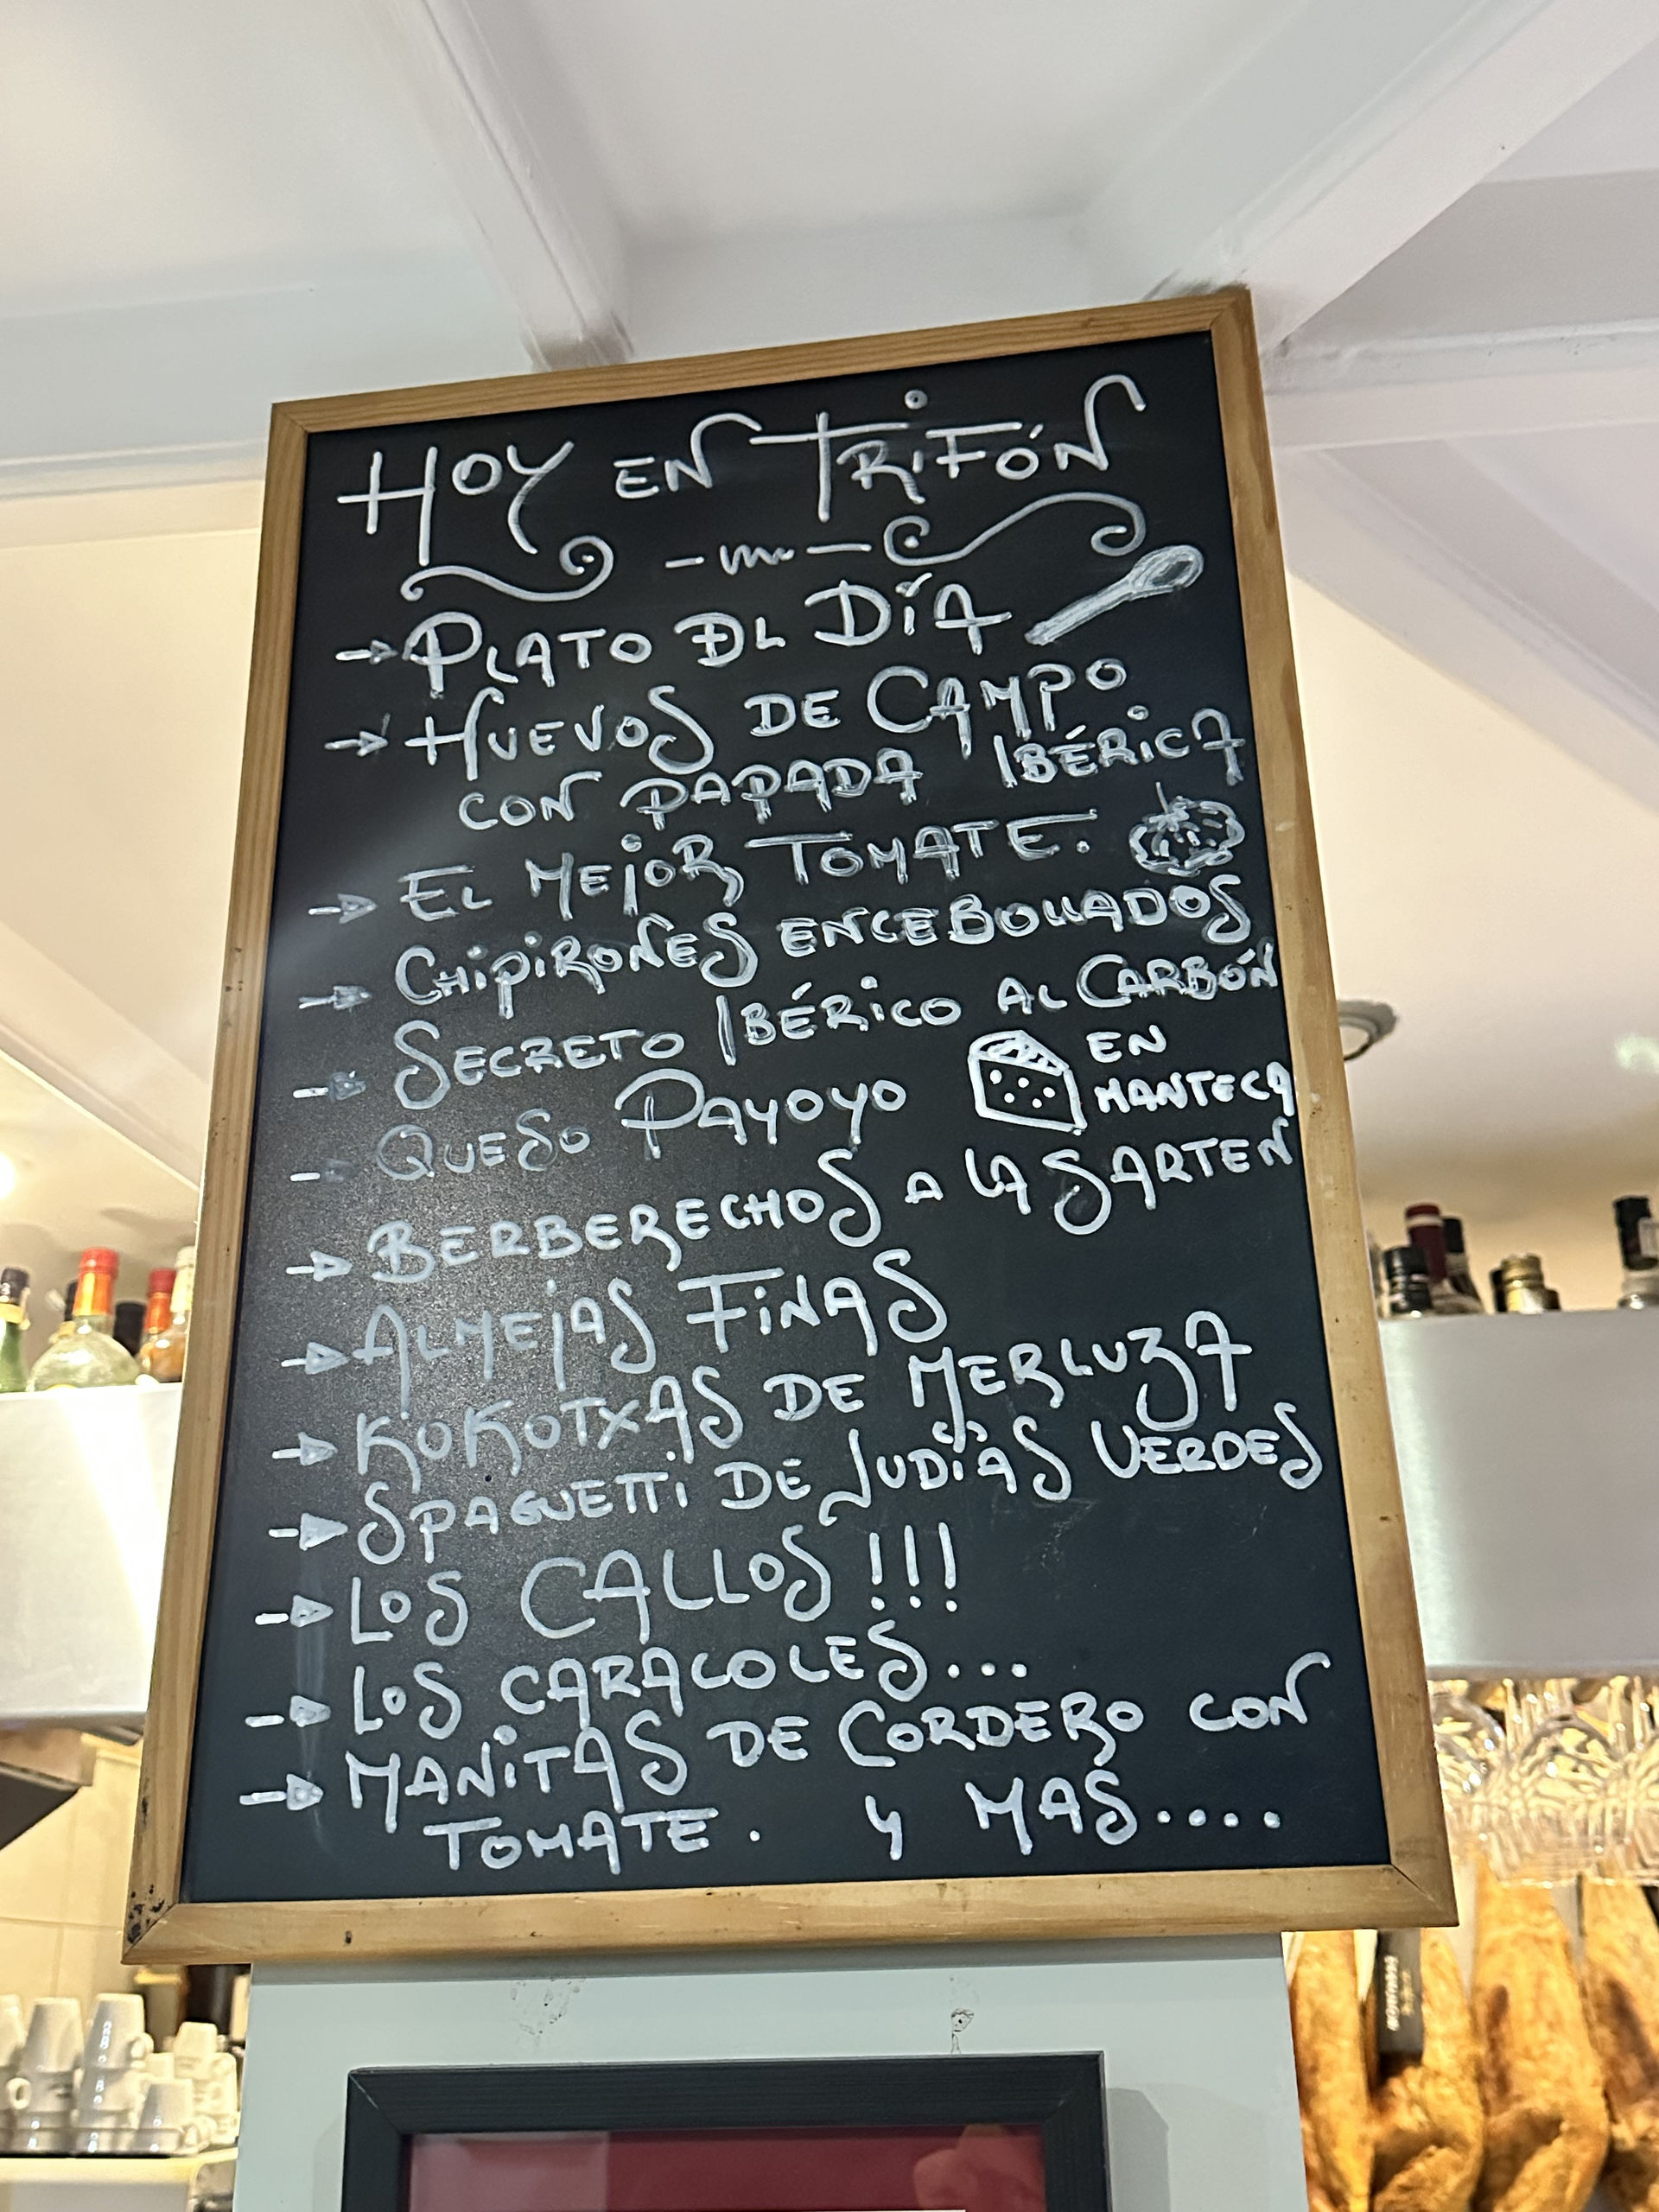 HOY EN TRIFÓN
PLATO DEL DÍA
HUEVOS DE CAMPO
CON PAPADA IBÉRICA
EL MEJOR TOMATE.
CHIPIRONES ENCEBOLLADOS
SECRETO IBÉRICO AL CARBÓN
QUESO PAYOYO EN
MANTECA
BERBERECHOS A LA SARTEN
ALMEJAS FINAS
KOKOTXAS DE MERLUZA
SPAGUETTI DE JUDÍAS VERDES
LOS CALLOS!!!
LOS CARACOLES...
MANITAS DE CORDERO CON
TOMATE. Y MAS....